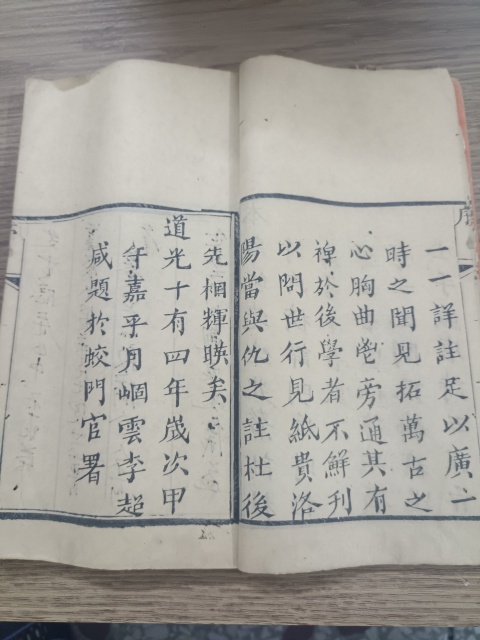 一一詳註足以廣一
時之聞見拓萬古之
心胸曲鬯旁通其有
裨於後學者不鮮刋
以問世行見紙貴洛
陽當與仇之註杜後
先相輝暎矣
道光十有四年嵗次甲
午嘉平月崓雲李超
咸題於蛟門官署
序